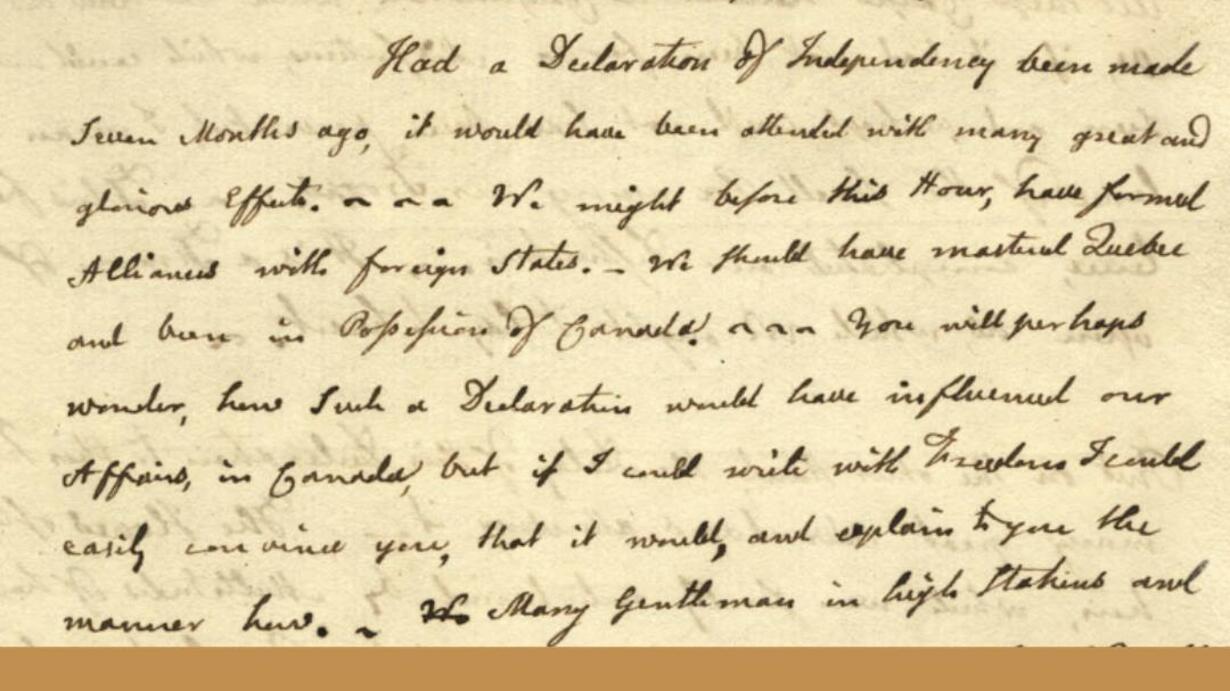 Had a Declaration of Independency been made
Seven Months ago, it would have been attended with many great and
glorious Effects. ~ ~ ~ We might before this Hour, have formed
Alliances with foreign States. – We should have mastered Quebec
and been in Possession of Canada. ~ ~ ~ You will perhaps
wonder, how Such a Declaration would have influenced our
Affairs, in Canada, but if I could write with Freedom I could
easily convince you, that it would, and explain to you the
manner how. ~ Many Gentlemen in high Stations and